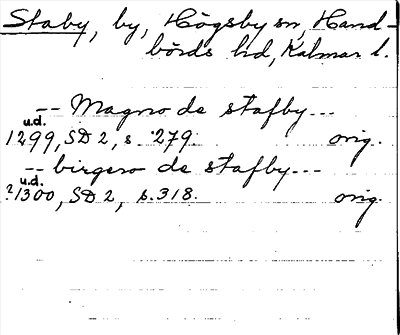 Staby, by, Högsby sn, Hand-
börds hd, Kalmar l.
-- Magno de stafby---
u.d.
1299, SD 2, s. 279. orig.
-- birgero de stafby---
u.d.
?1300, SD 2, s. 318. orig.